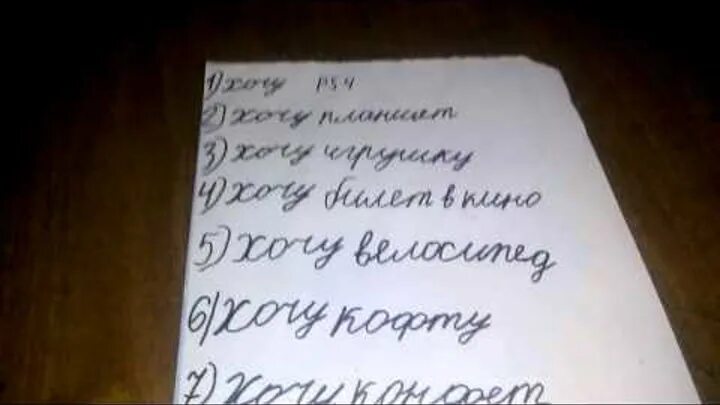 1) хочу PS4
2) хочу планшет
3) хочу игрушку
4) хочу билет в кино
5) хочу велосипед
6) хочу кофту
7) хочу конфет